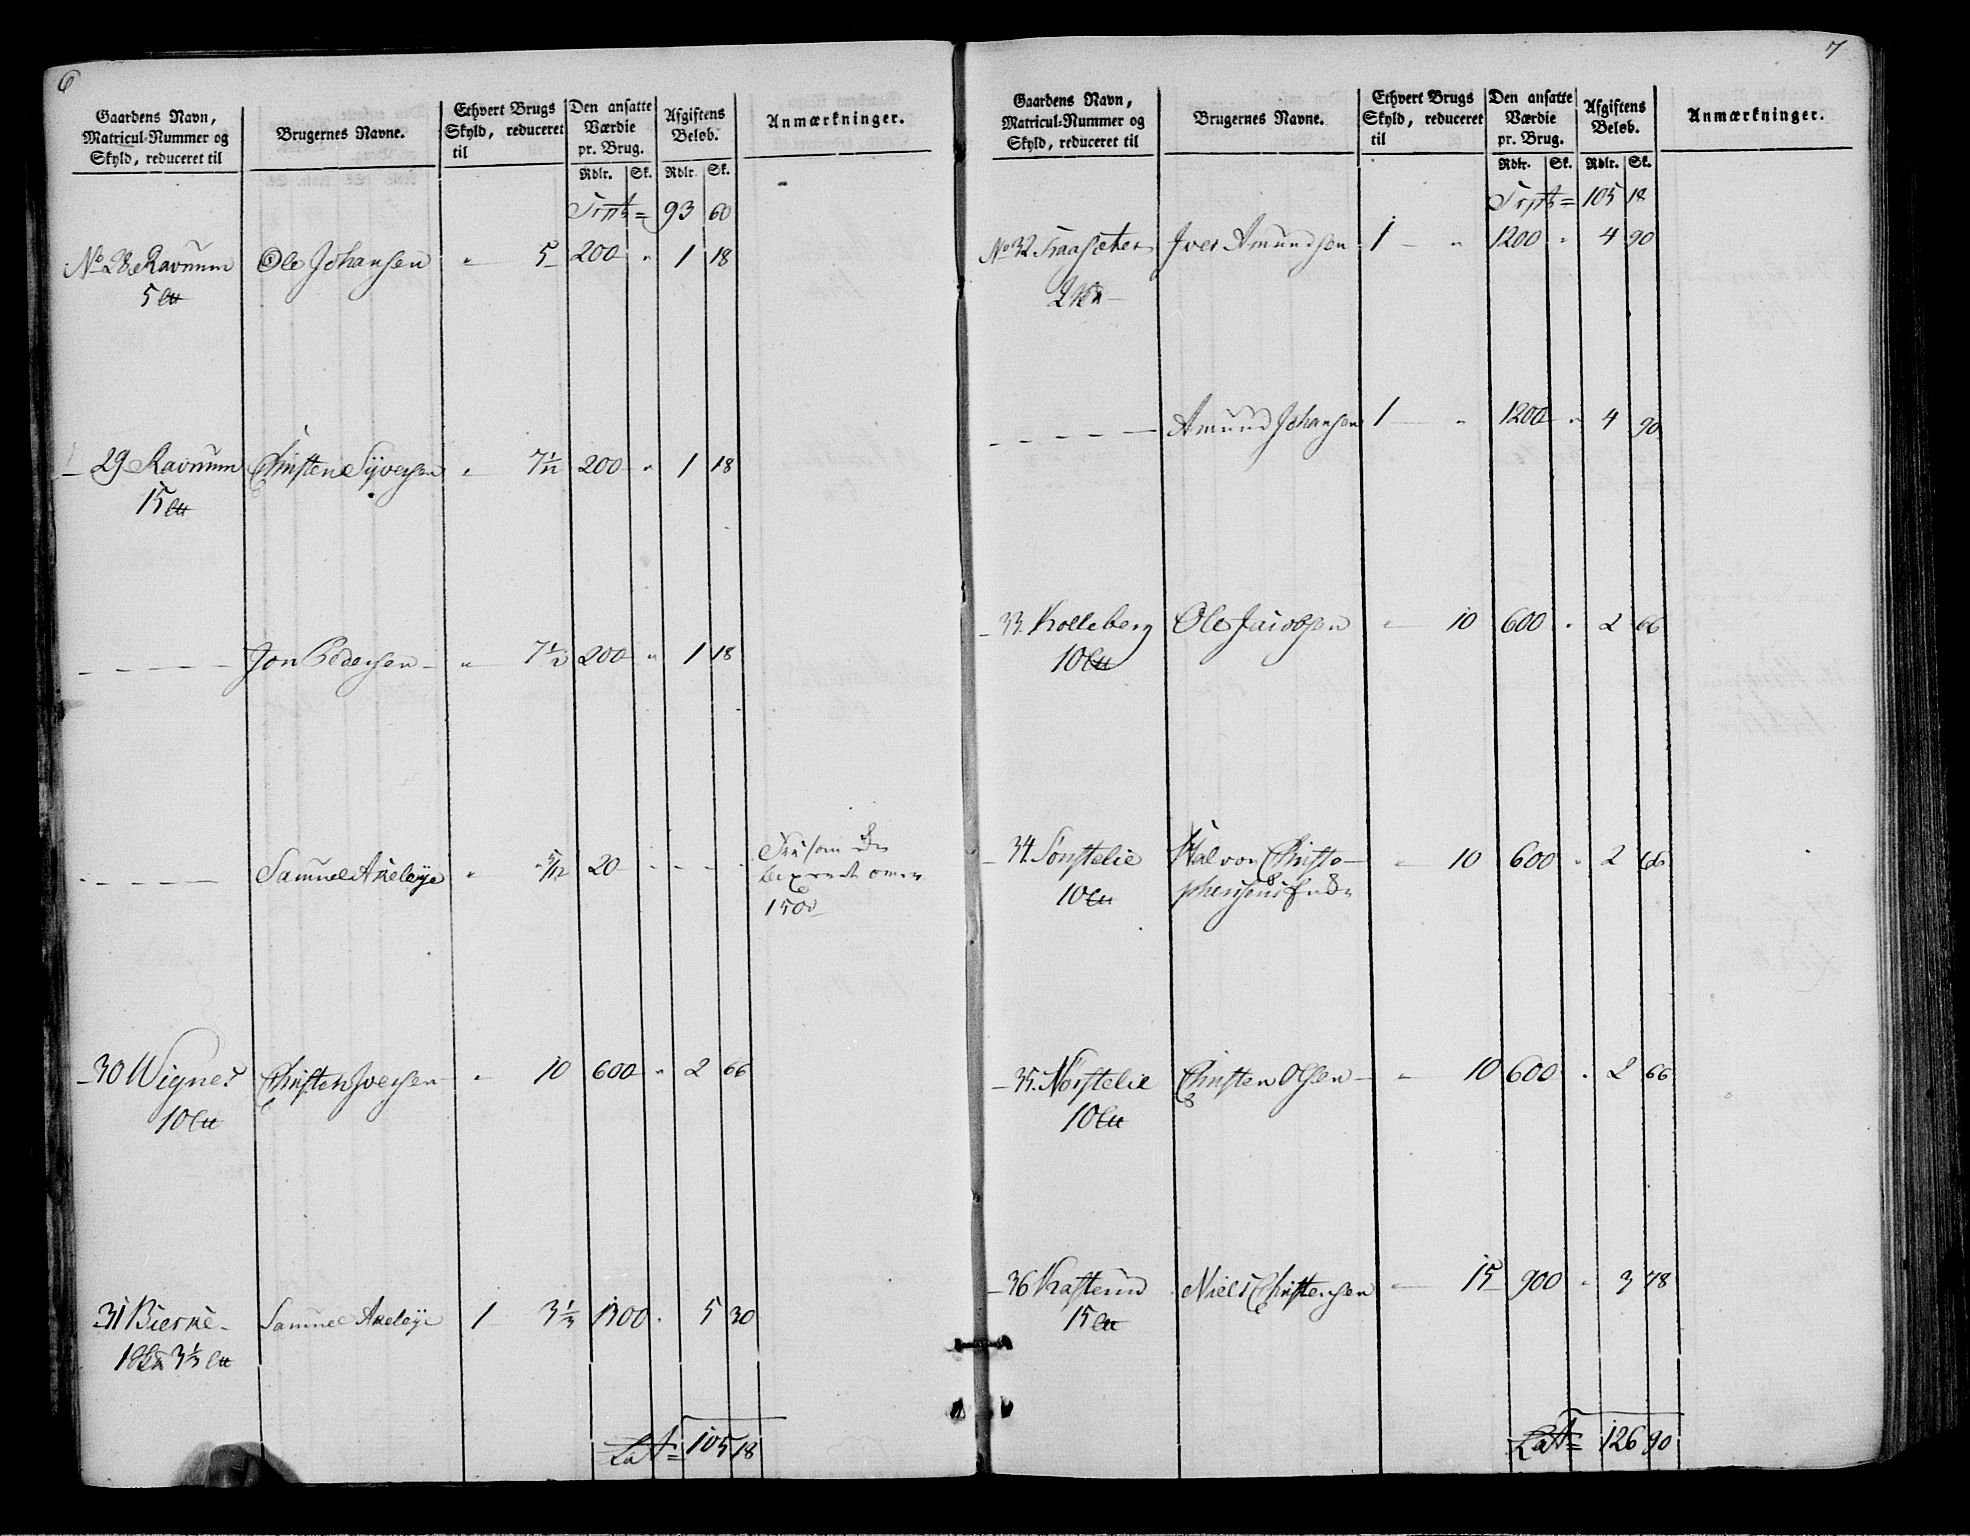 6
Gaardens Navn, Matricul-Nummer og Skyld, reduceret til | Brugernes Navne. | Ethvert Brugs Skyld, reduceret til | Den ansatte Værdie pr. Brug. | Afgiftens Beløb. | Anmærkninger.
Rdlr. | Sk. | Rdlr. | Sk.
Trspt = 93 60
No 28 Ravnum Ole Johansen " 5 200 " 1 18
5 Lu
29 Ravnum Christen Syversen " 7½ 200 " 1 18
15 Lu
— — — Jon Pedersen " 7½ 200 " 1 18
— — — Samuel Axeløye " 5/12 20 - - -
1500
30 Wignes Christen Iversen " 10 600 " 2 66
10 Lu
31 Bierke Samuel Axeløye 1 3⅓ 1300 " 5 30
3⅓ Lu
Lat = 105 18
7
Gaardens Navn, Matricul-Nummer og Skyld, reduceret til | Brugernes Navne. | Ethvert Brugs Skyld, reduceret til | Den ansatte Værdie pr. Brug. | Afgiftens Beløb. | Anmærkninger.
Rdlr. | Sk. | Rdlr. | Sk.
Trspt = 105 18
No 32 Traaseter Iver Amundsen 1 " 1200 " 4 90
— — — Amund Johansen 1 " 1200 " 4 90
33. Kolleberg Ole Jacobsen " 10 600 " 2 66
10 Lu
34. Sønstelie Halvor Christo-
10 Lu phersens " 10 600 " 2 66
35. Norstelie Christen Olsen " 10 600 " 2 66
10 Lu
36 Kasterud Niels Christensen " 15 900 " 3 78
15 Lu
Lat = 126 90